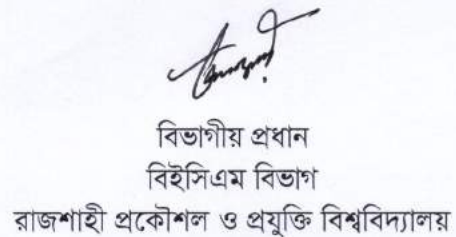 বিভাগীয় প্রধান
বিইসিএম বিভাগ
রাজশাহী প্রকৌশল ও প্রযুক্তি বিশ্ববিদ্যালয়